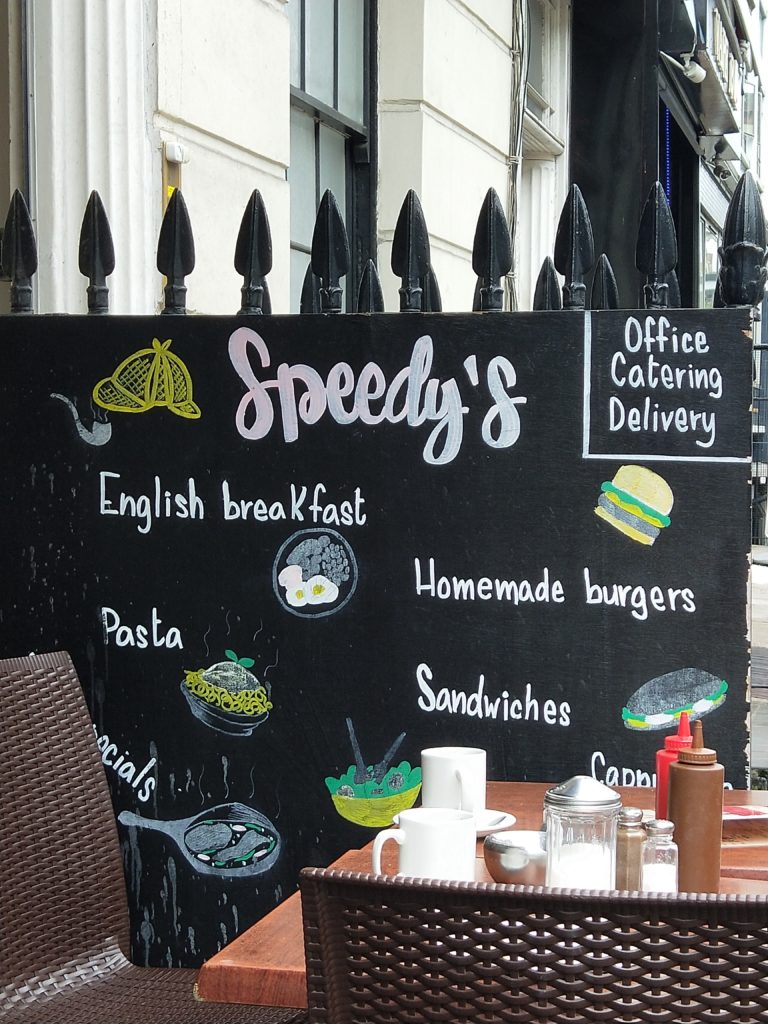 Speedy's
Office
Catering
Delivery
English breakfast
Homemade burgers
Pasta
Sandwiches